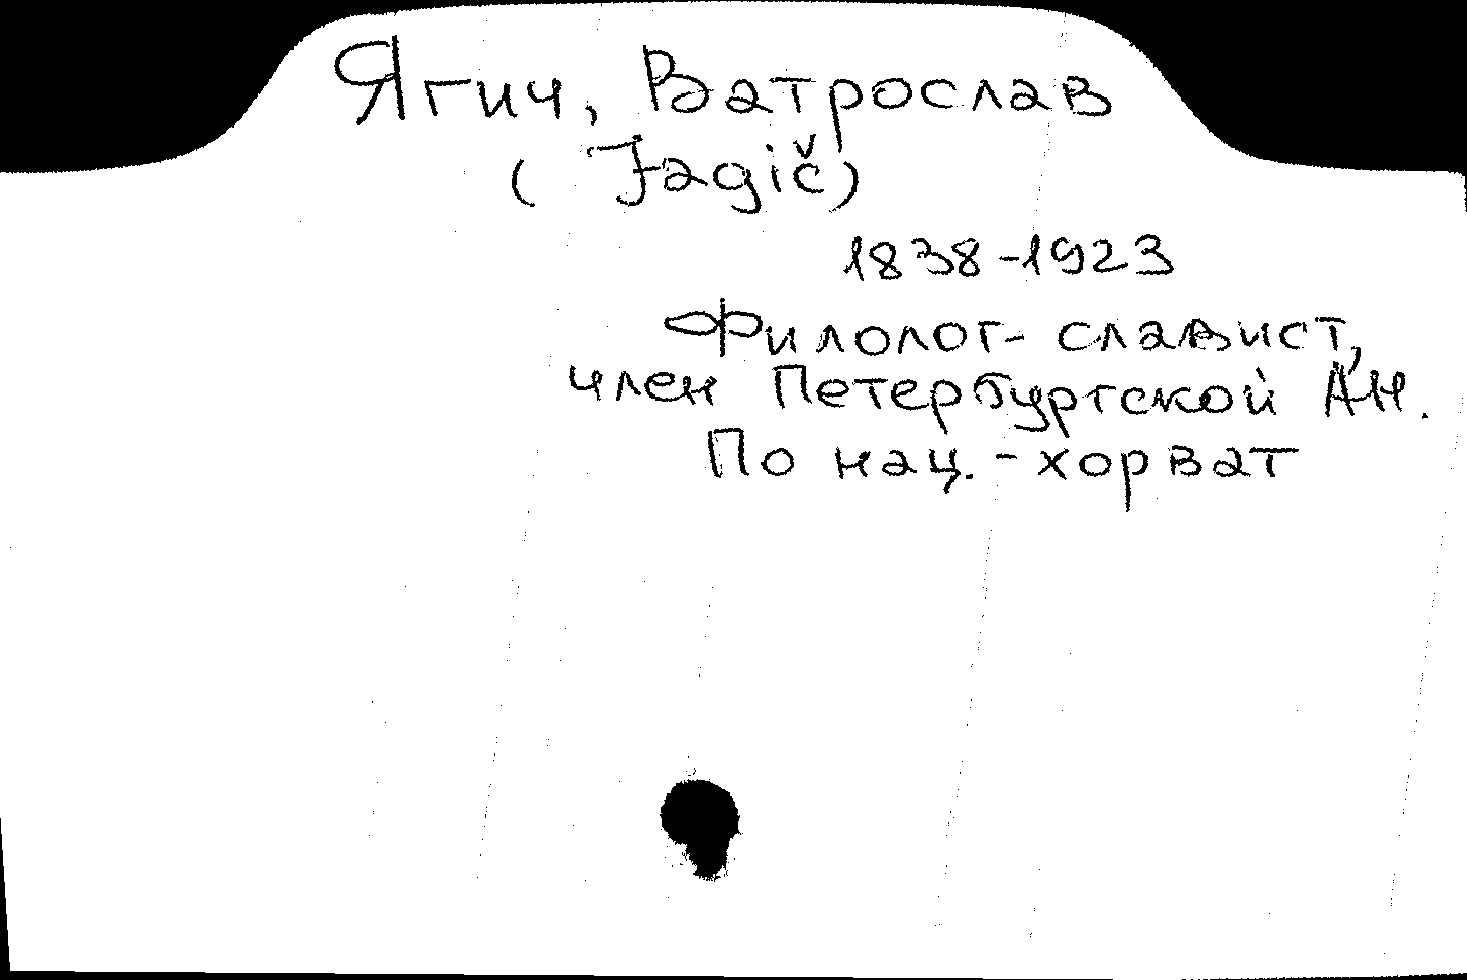 Ягич, Ватрослав
(Jagič)
1838-1923
Филолог-славист,
член Петербургской АН.
По нац.-хорват